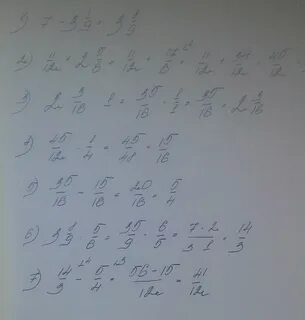 1) 7 - 3 1/9 = 3 8/9
2) 11/12 + 2 5/6 = 11/12 + 17/6 = 11/12 + 34/12 = 45/12
3) 2 3/16 : 1 = 35/16 · 1/1 = 35/16 = 2 3/16
4) 45/12 · 1/4 = 45/48 = 15/16
5) 35/16 - 15/16 = 20/16 = 5/4
6) 3 8/9 : 5/6 = 35/9 · 6/5 = 7·2/3·1 = 14/3
7) 14/3 - 5/4 = 56-15/12 = 41/12